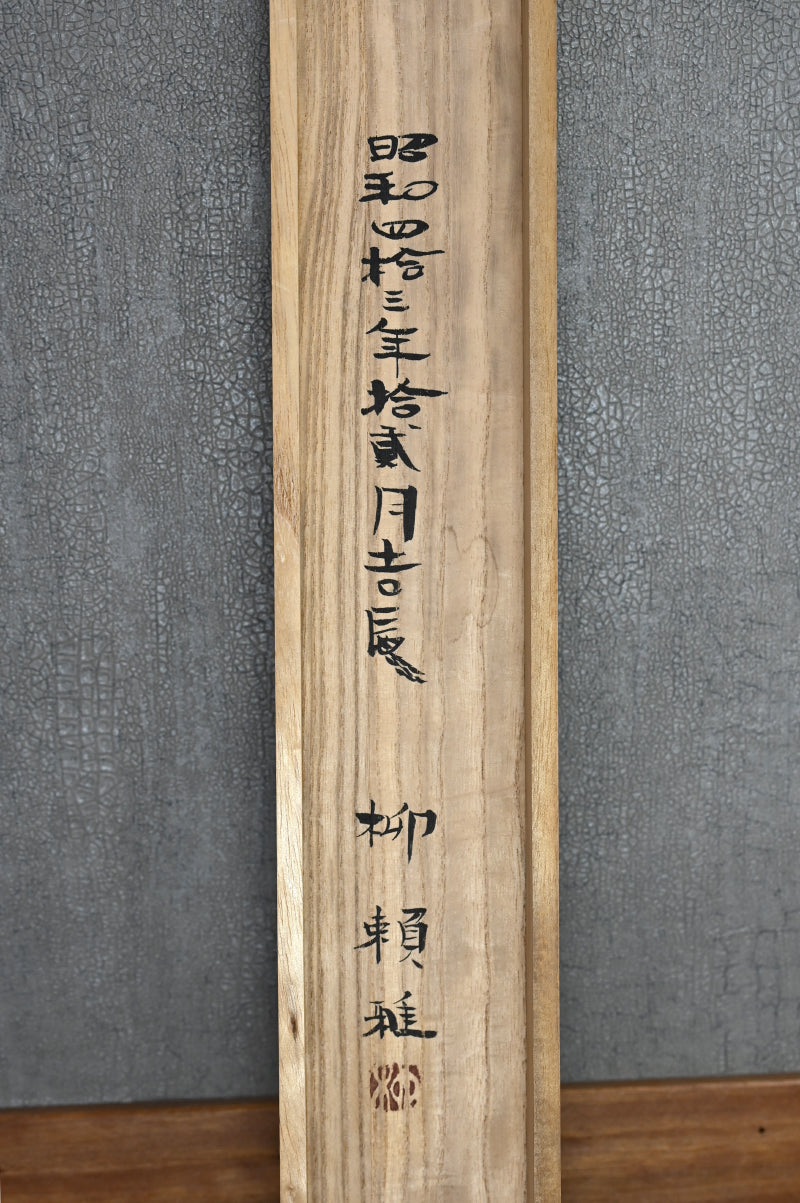 昭和四拾三年拾貳月吉辰
柳頼雅